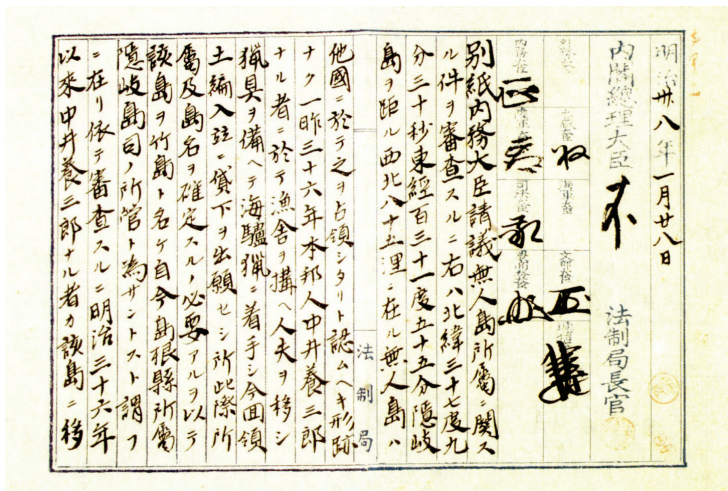 明治卅八年一月廿八日
内閣總理大臣
法制局長官
別紙内務大臣請議無人島所屬ニ関ス
ル件ヲ審査スルニ右ハ北緯三十七度九
分三十秒東經百三十一度五十五分隠岐
島ヲ距ル西北八十五浬ニ在ル無人島ハ
他國ニ於テ之ヲ占領シタリト認ムヘキ形跡
ナク一昨三十六年本邦人中井養三郎
ナル者ニ於テ漁舎ヲ搆ヘ人夫ヲ移シ
獵具ヲ備ヘテ海驢獵ニ着手シ今回領
土編入竝ニ貸下ヲ出願セシ所此際所
屬及島名ヲ確定スルノ必要アルヲ以テ
該島ヲ竹島ト名ケ自今島根縣所屬
隠岐島司ノ所管ト為サントスト謂フ
ニ在リ依テ審査スルニ明治三十六年
以来中井養三郎ナル者カ該島ニ移
法制局